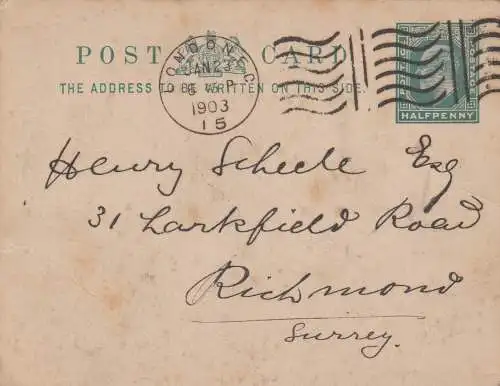 POST CARD
THE ADDRESS TO BE WRITTEN ON THIS SIDE.
LONDON. E.C
JAN 23
5 45 P
1903
15
HALFPENNY
Henry Scheele Esq
31 Larkfield Road
Richmond
Surrey.